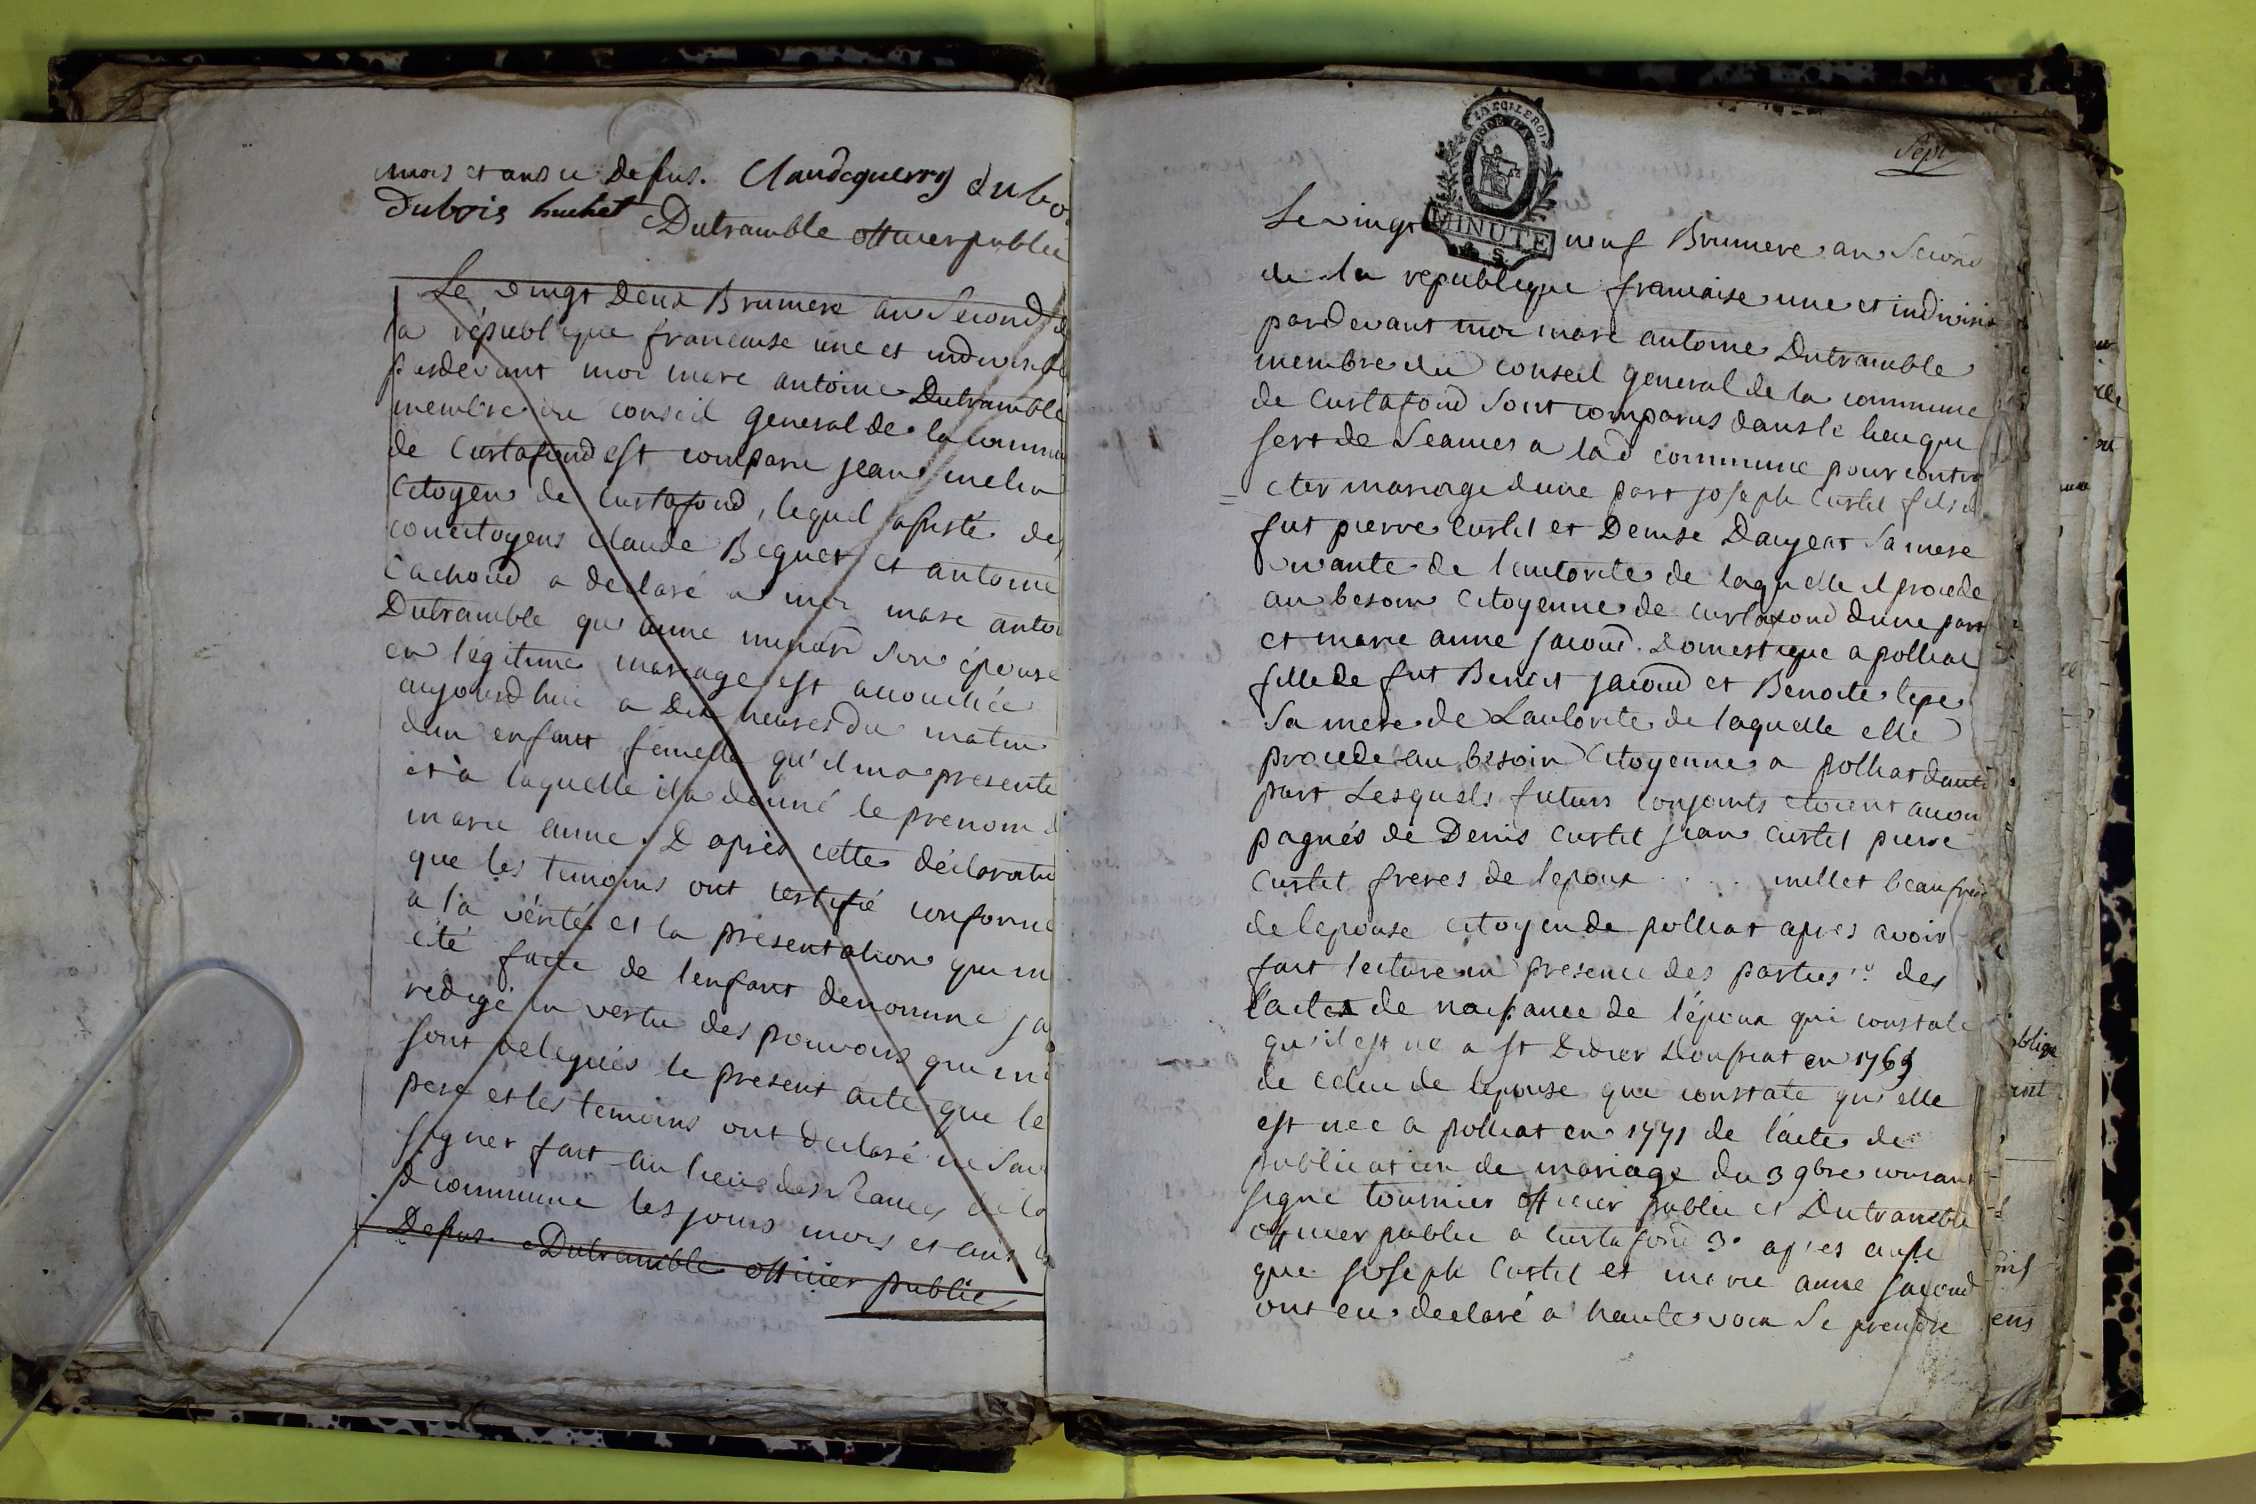 mois et ans ci Desus. Claude guerry dubo
Dubois huchet Dutramble officier public
Le vingt Deux Brumere an Second de
la république francaise une et indivisible
pardevant moi marc antoine Dutramble
membre du conseil general de la commun
de Curtafond est comparu jean melin
Citoyen de Curtafond, lequel assisté des
concitoyens claude Beguet et antoine
Cachoud a declaré a moi marc antoi
Dutramble que anne son épouse
en légitime mariage est accouchée
aujourdhui a Dix heures du matin
dun enfant femelle qu'il ma presenté
et a laquelle il a donné le prenom d
marie anne. D'après cette déclaration
que les temoins ont certifié conforme
a la vérité et la présentation qui m
été faite de l'enfant denommé j'ai
redigé en vertu des pouvoirs qui me
sont delegués le present acte que le
pere et les temoins ont declaré ne savoir
signer fait au lieu des séances de la
d commune les jours mois et ans ci
Desus. Dutramble officier public
Sept
MINUTE
Le vingt neuf Brumere an Second
de la republique francaise une et indivisi
pardevant moi marc antoine Dutramble
membre du conseil general de la commune
de Curtafond sont comparus dans le lieu qui
sert de Seances a lad commune pour contra
cter mariage dune part joseph Curtet fils de
fut pierre Curtet et Denise Daujeat sa mere
vivante de l'autorite de laquelle il procede
au besoin Citoyenne de curtafond dune part
et marie anne jacoud Domestique a polliat
fille de fut Benoit jacoud et Benoite
sa mere de Lautorite de laquelle elle
procede au besoin Citoyenne a polliat dautre
part Lesquels futurs conjoints etoient accom
pagnés de Denis Curtet jean curtet pierre
Curtet freres de lepoux . . . . millet beaufrere
de lepouse citoyen de polliat apres avoir
fait lecture en presence des parties 1º des
l'actes de naissance de l'époux qui constate
qu'il est né a st Didier Doussiat en 1765
de celui de lepouse qui constate qu'elle
est née a polliat en 1771 de l'acte de
publication de mariage du 3 9bre courant
signé tournier officier public et Dutramble
officier public a curtafond 3º apres aussi
que joseph Curtet et marie anne jacoud
ont eu declaré a haute voix se prendre
oblige
ens